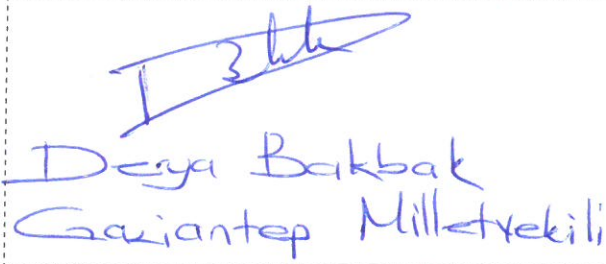 Derya Bakbak
Gaziantep Milletvekili